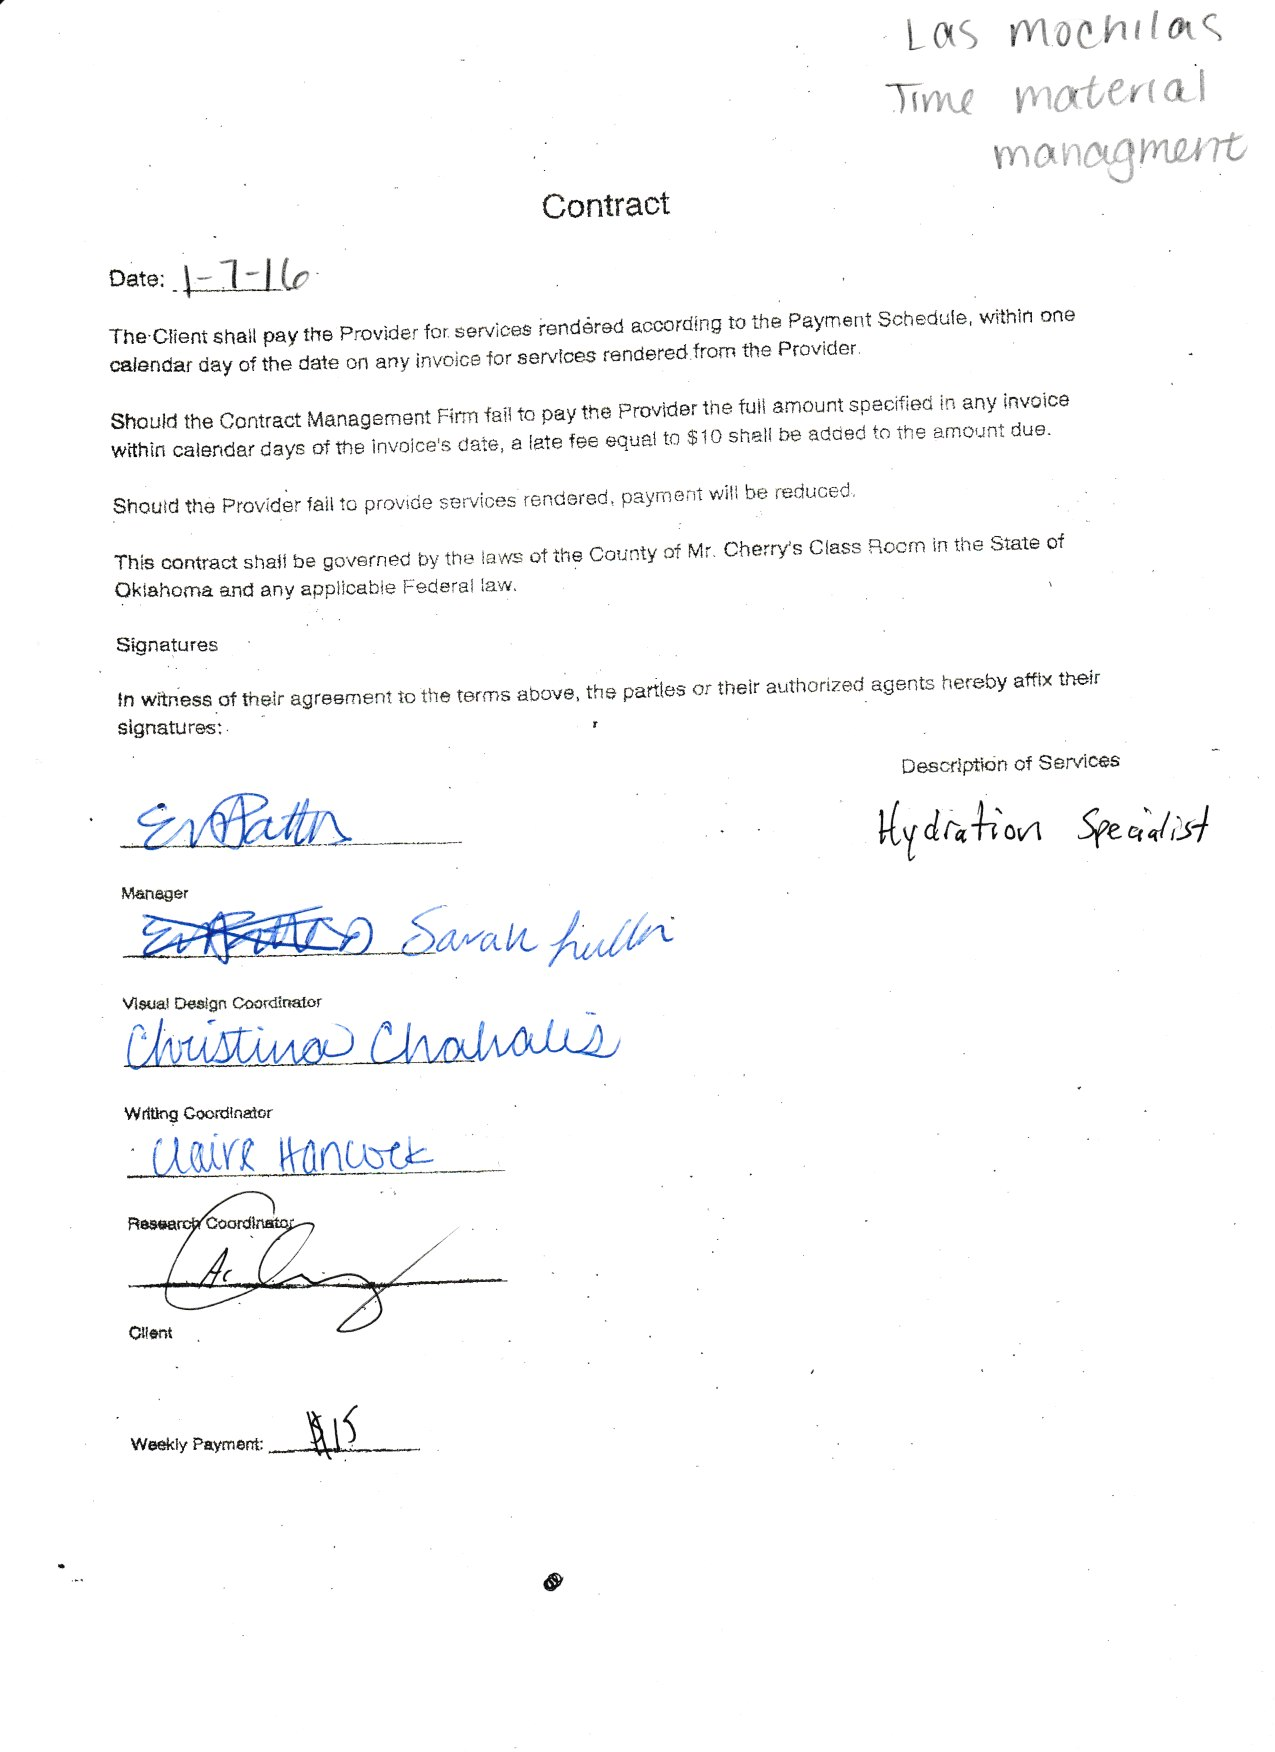 Las mochilas
Time material
managment
Contract
Date: 1-7-16
The Client shall pay the Provider for services rendered according to the Payment Schedule, within one
calendar day of the date on any invoice for services rendered from the Provider.
Should the Contract Management Firm fail to pay the Provider the full amount specified in any invoice
within calendar days of the invoice's date, a late fee equal to $10 shall be added to the amount due.
Should the Provider fail to provide services rendered, payment will be reduced.
This contract shall be governed by the laws of the County of Mr. Cherry's Class Room in the State of
Oklahoma and any applicable Federal law.
Signatures
In witness of their agreement to the terms above, the parties or their authorized agents hereby affix their
signatures:
Description of Services
Hydration Specialist
Manager
Sarah
Visual Design Coordinator
Christina Chahalis
Writing Coordinator
Claire Hancock
Research Coordinator
Client
Weekly Payment: $15